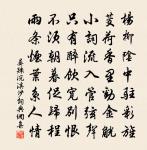 楊柳陰中駐彩旌
芰荷香里勸金觥
小詞流入管絃聲
只有醉吟寬別恨
不須朝暮促歸程
雨條煙葉系人情
晏殊浣溪沙